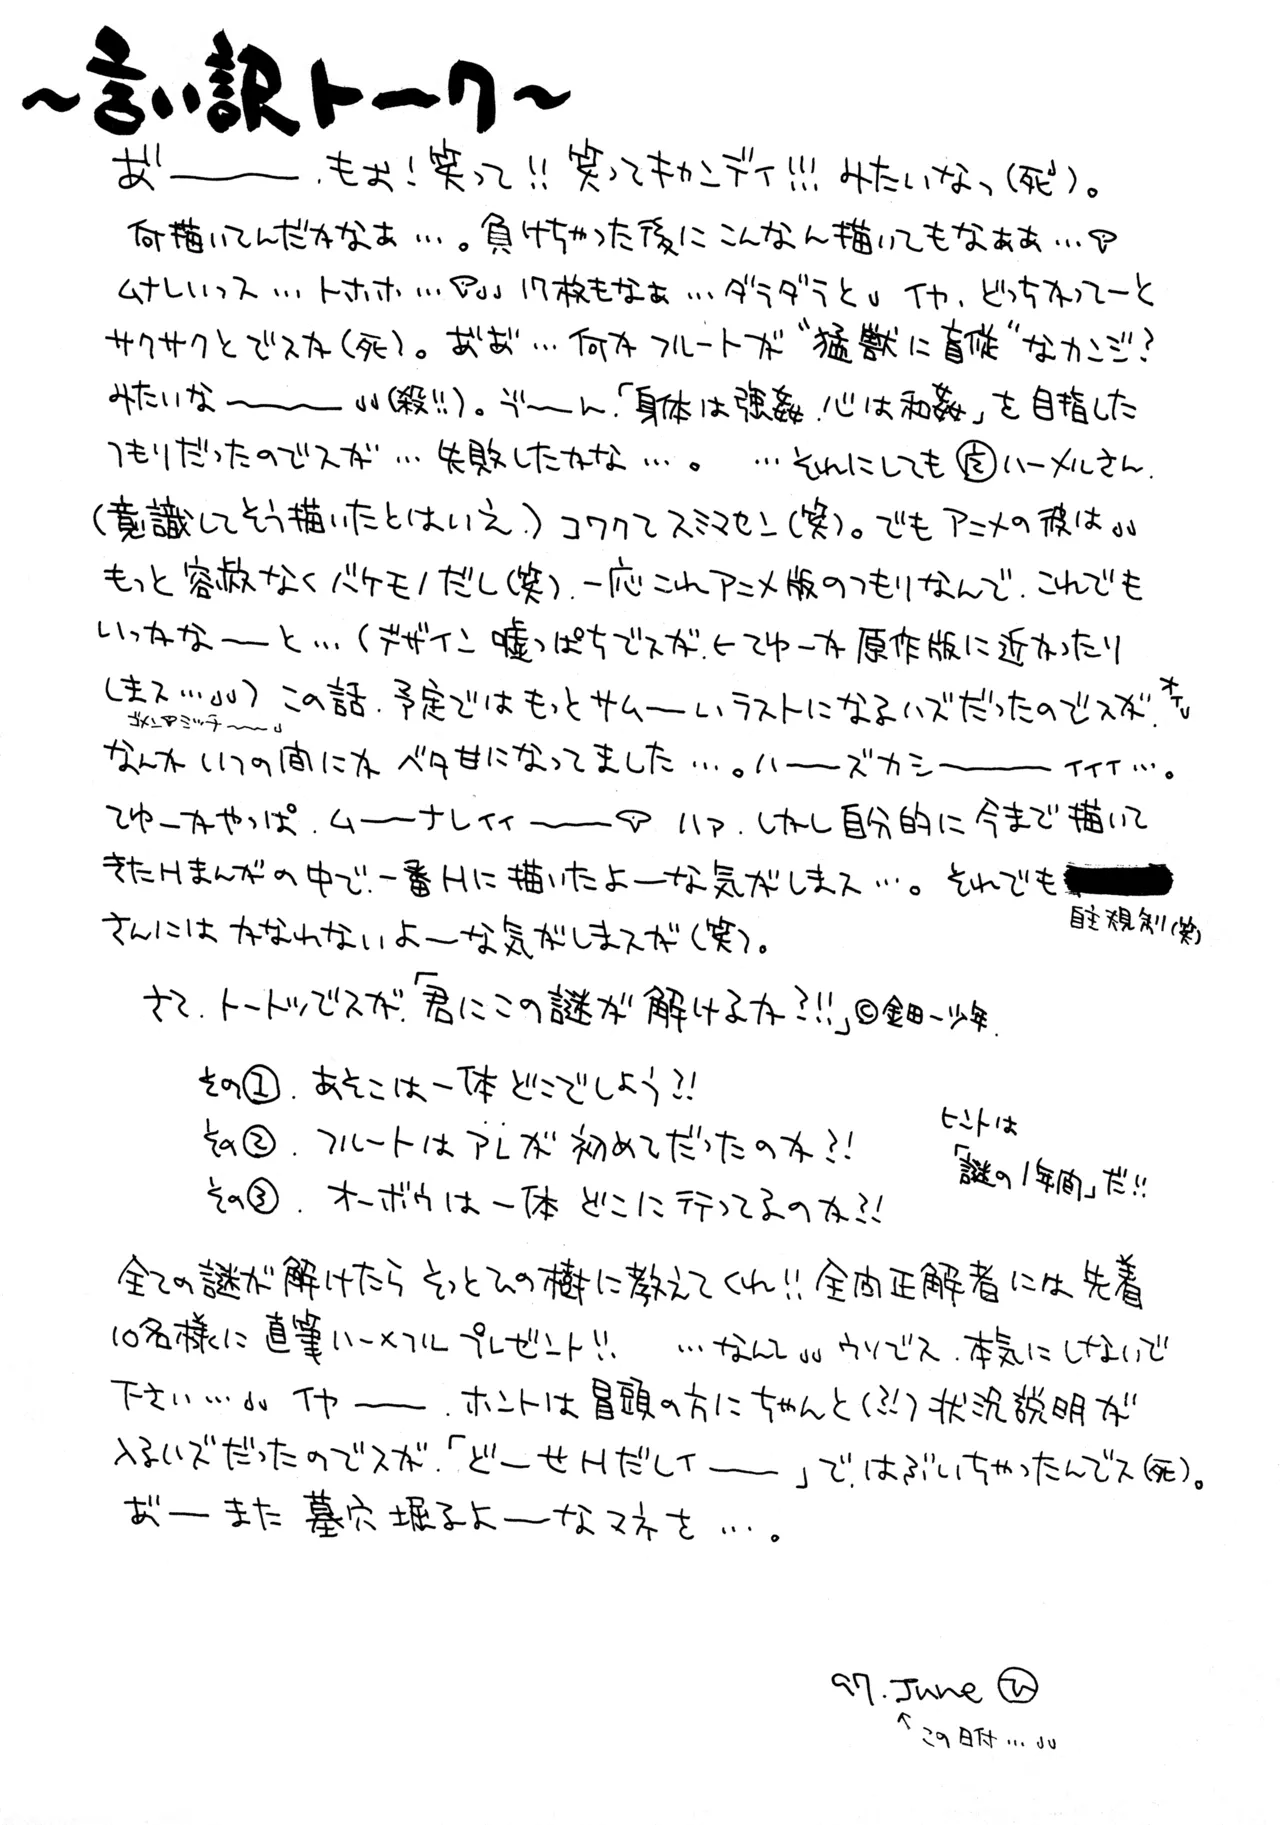 ～言い訳トーク～
あ゛―――、もお！笑って!!笑ってキャンディ!!!みたいなっ(死)。
何描いてんだかなぁ…。負けちゃった後にこんなん描いてもなぁぁ…
ムナしいっス…トホホ… 17枚もなぁ…ダラダラと イヤ、どっちかってーと
サクサクとでスか(死)。あ゛あ゛…何かフルートが“猛獣に盲従”なカンジ？
みたいな――― (殺!!)。う゛ーん、「身体は強姦、心は和姦」を目指した
つもりだったのでスが…失敗したかな…。 …それにしても ハーメルさん、
(意識してそう描いたとはいえ、)コワクてスミマセン(笑)。でもアニメの彼は
もっと容赦なくバケモノだし(笑)、一応これアニメ版のつもりなんで、これでも
いっかな――と…(デザイン嘘っぱちでスが、ヒてゆーか原作版に近かったり
しまス…)この話、予定ではもっとサムーいラストになるハズだったのでスが、
なんかいつの間にかベタ甘になってました…。ハ――ズカシ―――ィィィ…。
てゆーかやっぱ、ム――ナしィィ――― ハァ、しかし自分的に今まで描いて
きたHまんがの中で、一番Hに描いたよーな気がしまス…。それでも
自主規制(笑)
さんにはかなわないよーな気がしまスが(笑)。
さて、トートツでスが、「君にこの謎が解けるか?!!」©金田一少年、
その①、あそこは一体どこでしょう?!
その②、フルートはアレが初めてだったのか?!
その③、オーボウは一体どこに行ってるのか?!
ヒントは
「謎の1年間」だ!!
全ての謎が解けたらそっとひの樹に教えてくれ!!全問正解者には先着
10名様に直筆ハーメフルプレゼント!! …なんて ウソでス、本気にしないで
下さい… イヤ――、ホントは冒頭の方にちゃんと(?!)状況説明が
入るハズだったのでスが、「どーせHだしィ――」で、はぶいちゃったんでス(死)。
あ゛―また墓穴堀るよーなマネを…。
97.June ㋪
↑この日付…